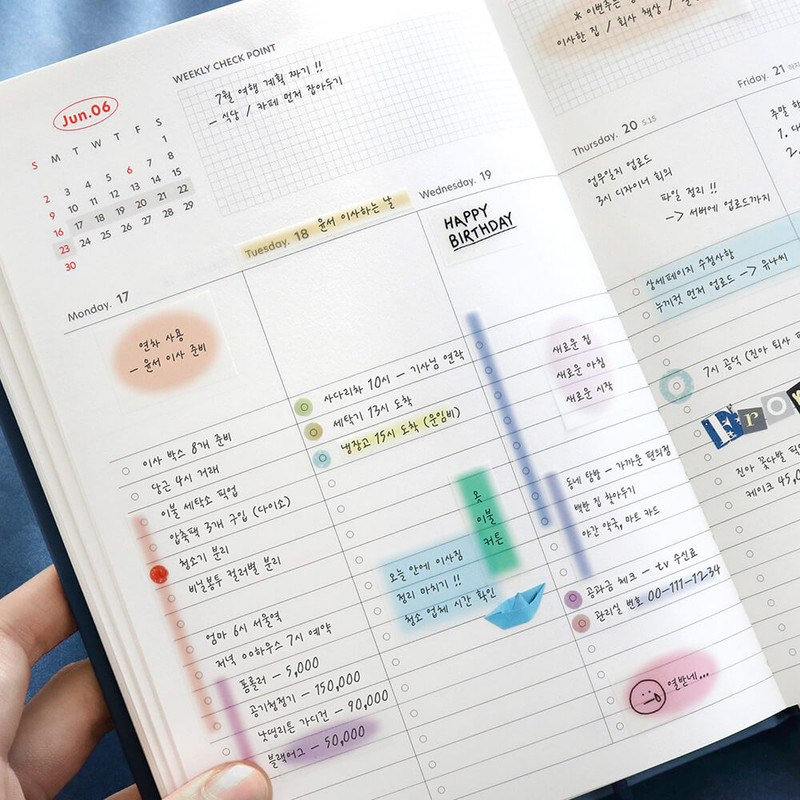 WEEKLY CHECK POINT
7월 여행 계획 짜기 !!
– 식당 / 카페 먼저 잡아두기
Jun.06
S M T W T F S
1
2 3 4 5 6 7 8
9 10 11 12 13 14 15
16 17 18 19 20 21 22
23 24 25 26 27 28 29
30
Monday. 17
연차 사용
– 윤서 이사 준비
이사 박스 8개 준비
당근 4시 거래
이불 세탁소 픽업
압축팩 3개 구입 (다이소)
청소기 분리
비닐봉투 컬러별 분리
엄마 6시 서울역
저녁 00하우스 7시 예약
폼롤러 – 5,000
공기청정기 – 150,000
낫띵리튼 가디건 – 90,000
블랙어그 – 50,000
Tuesday. 18 윤서 이사하는 날
사다리차 10시 – 기사님 연락
세탁기 13시 도착
냉장고 15시 도착 (운임비)
옷
이불
커튼
오늘 안에 이사짐
정리 마치기 !!
청소 업체 시간 확인
Wednesday. 19
HAPPY
BIRTHDAY
새로운 집
새로운 아침
새로운 시작
동네 탐방 – 가까운 편의점
백반 집 찾아두기
야간 약국, 마트 카드
공과금 체크 – tv 수신료
관리실 번호 00-111-1234
열받네...
* 이번주는
이사한 집 / 회사 책상 /
Thursday. 20 5.15
업무일지 업로드
3시 디자이너 회의
파일 정리 !!
-> 서버에 업로드까지
상세페이지 수정사항
누끼컷 먼저 업로드 -> 유나씨
7시 공덕 (진아 퇴사
Fro
진아 꽃다발 픽
케이크 45,0
Friday. 21
주말
1.
2.